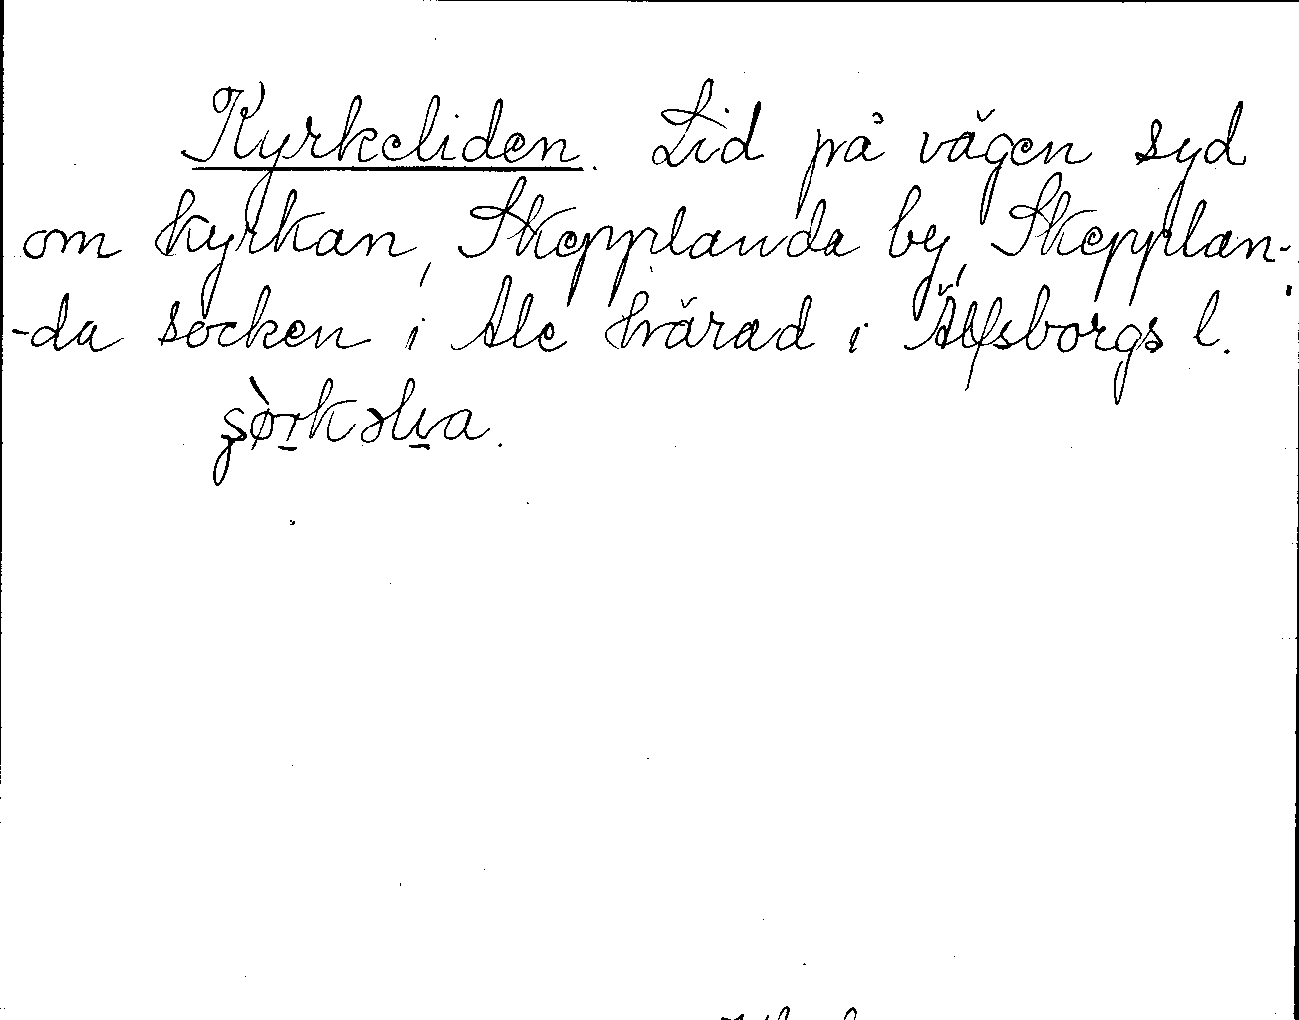 Kyrkeliden. Lid på vägen syd
om kyrkan, Skepplanda by, Skepplan-
-da socken i Ale härad i Älfsborgs l.